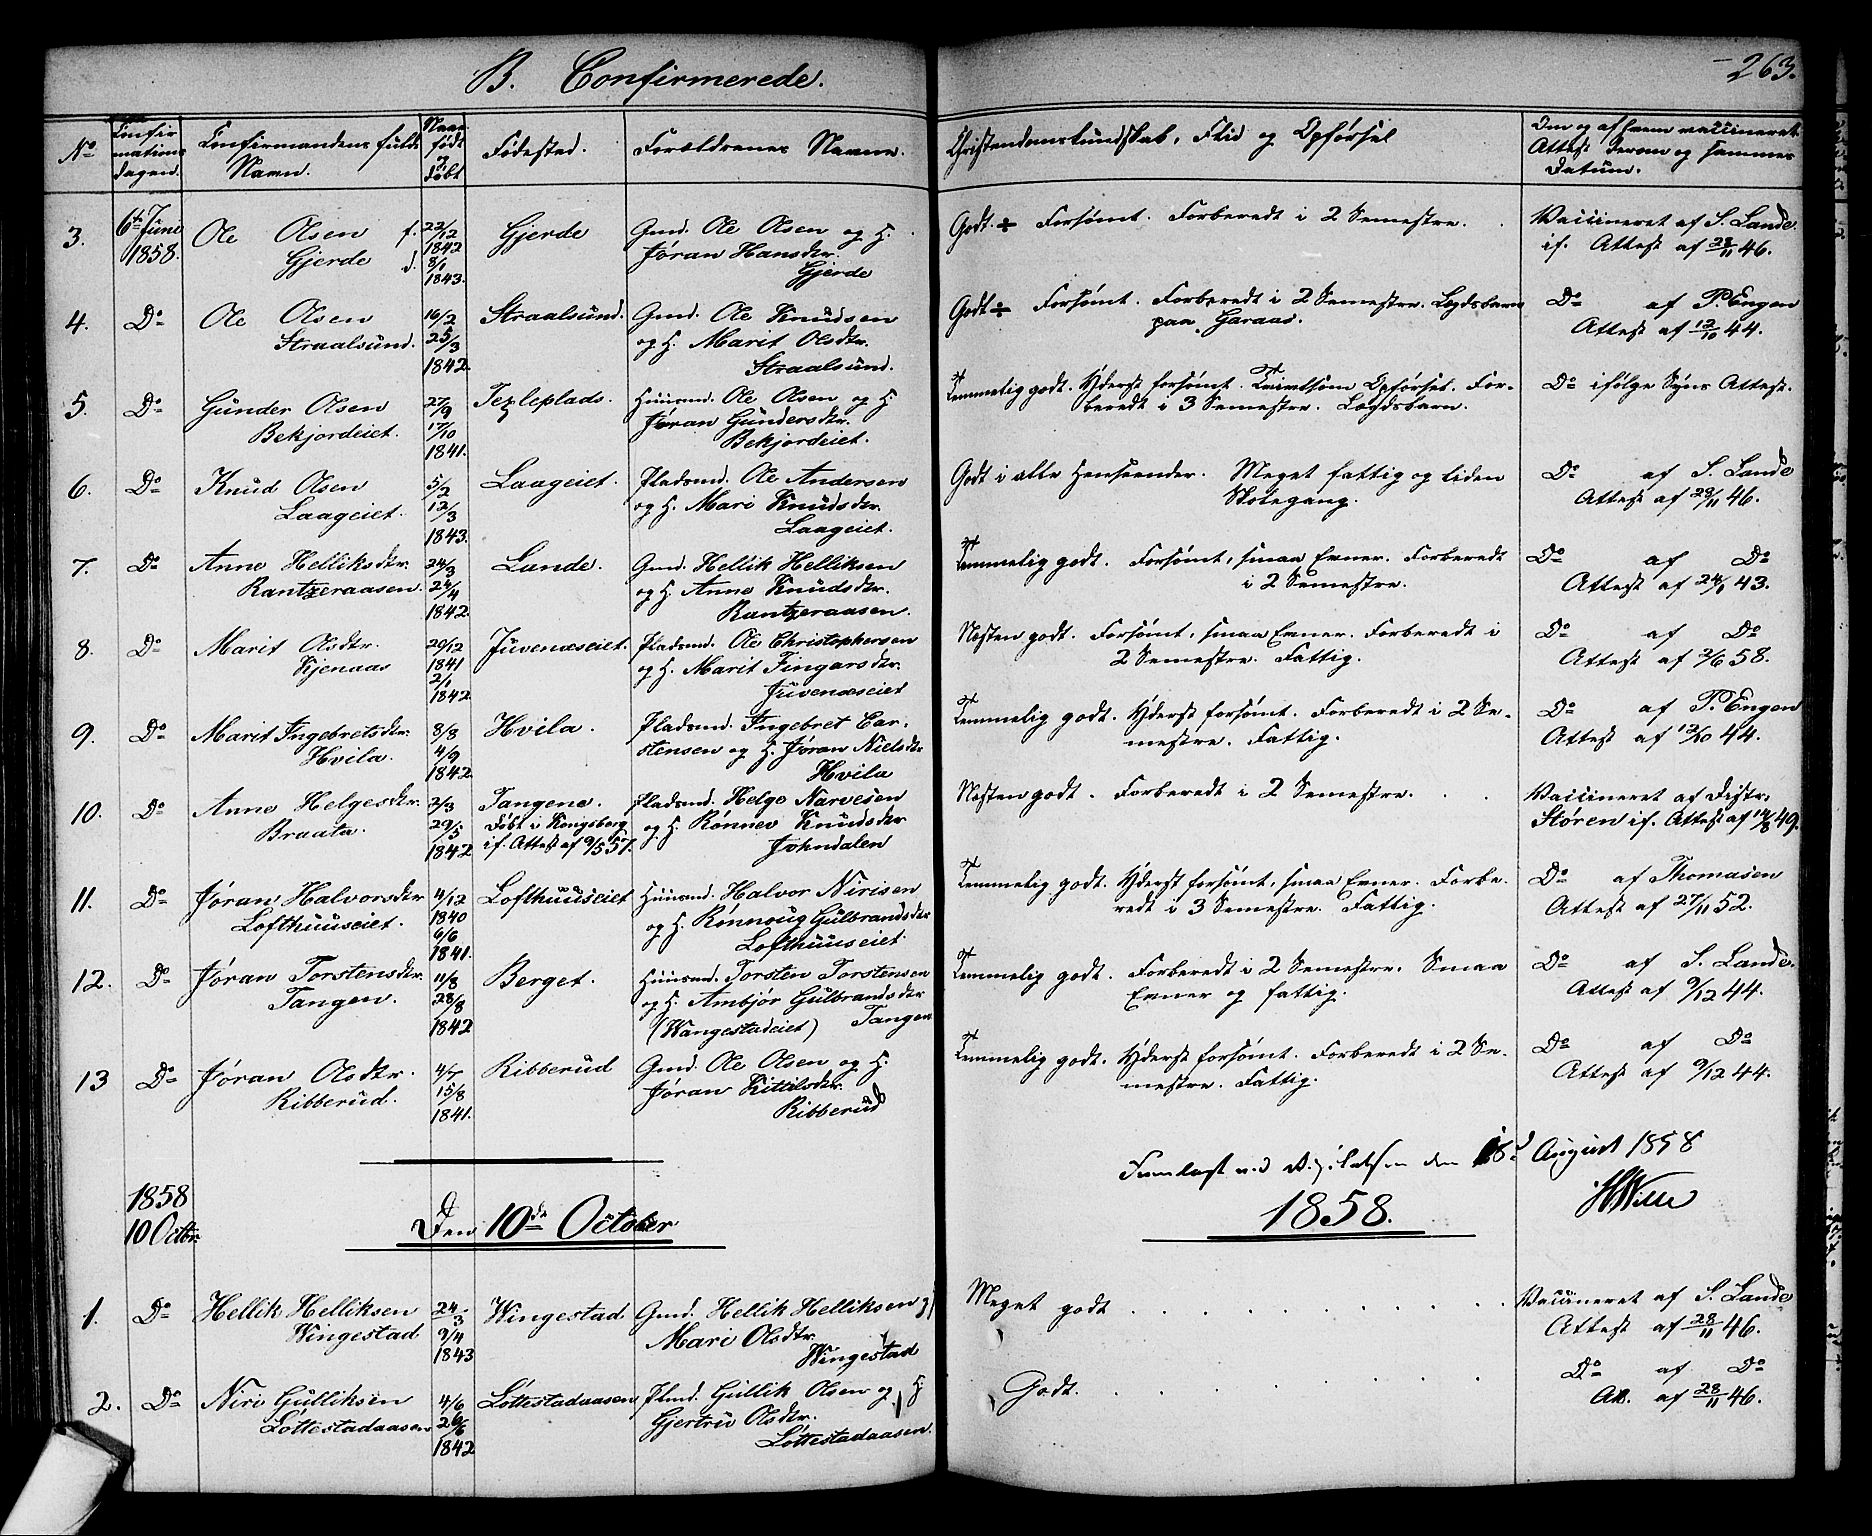 B. Confirmerede.
263.
No.
Confirmationsdagen.
Confirmandens fulde Navn.
Naar født og døbt
Fødested.
Forældrenes Navne.
Christendomskundskab, Flid og Opførsel
Om og af hvem vaccineret
Attest derom og sammes
Datum.
3. 6te Juni 1858. Ole Olsen Gjerde f. 22/12 1842 d. 8/1 1843. Gjerde Gmd. Ole Olsen og H. Jøran Hansdtr. Gjerde Godt ÷ Forsømt. Forberedt i 2 Semestre. Vaccineret af S. Lande if. Attest af 28/11 46.
4. Do Ole Olsen Straalsund. 16/2 25/3 1842. Straalsund. Gmd. Ole Knudsen og H. Marit Olsdtr. Straalsund. Godt ÷ Forsømt. Forberedt i 2 Semestre. Lægdsbarn paa Garaas. Do af P. Engen Attest af 12/10 44.
5. Do Gunder Olsen Bekjordeiet. 27/9 17/10 1841. Tegleplads. Huusmd. Ole Olsen og H. Jøran Gundersdtr. Bekjordeiet. Temmelig godt. Yderst forsømt. Opførsel. Forberedt i 3 Semestre. Lægdsbarn. Do ifølge Syns Attest.
6. Do Knud Olsen Laageiet. 5/2 12/3 1843. Laageiet. Pladsmd. Ole Andersen og H. Mari Knudsdtr. Laageiet. Godt i alle Henseender. Meget fattig og liden Skolegang. Do af S. Lande Attest af 28/11 46.
7. Do Anne Helliksdtr. Rantzeraasen. 24/3 24/4 1842. Lande. Gmd. Hellik Helliksen og H. Anne Knudsdtr. Rantzeraasen. Temmelig godt. Forsømt, smaa Evner. Forberedt i 2 Semestre. Do af Do Attest af 24/1 43.
8. Do Marit Olsdtr. Kjenaas 29/12 1841 2/1 1842. Juvenæseiet. Pladsmd. Ole Christophersen og H. Marit Fingarsdtr. Juvenæseiet Næsten godt. Forsømt, smaa Evner. Forberedt i 2 Semestre. Fattig. Do af Do Attest af 2/6 58.
9. Do Marit Ingebretsdtr. Hvila. 8/8 4/9 1842. Hvila. Pladsmd. Ingebret Carstensen og H. Jøran Nielsdtr Hvila Temmelig godt. Yderst forsømt. Forberedt i 2 Semestre. Fattig. Do af P. Engen Attest af 12/10 44.
10. Do Anne Helgesdtr. Braata. 2/3 29/5 1842 Tangene. Døbt i Kongsberg if. Attest af 9/5 57. Pladsmd. Helge Narvesen og H. Rønnev Knudsdtr Johndalen Næsten godt. Forberedt i 2 Semestre. Vaccineret af Distr. Støren if. Attest af 14/8 49.
11. Do Jøran Halvorsdtr Lofthuuseiet. 4/12 1840 6/6 1841. Lofthuuseiet Huusmd. Halvor Nirisen og H. Rønnoug Gulbrandsdtr Lofthuuseiet. Temmelig godt. Yderst forsømt, smaa Evner. Forberedt i 3 Semestre. Fattig. Do af Thomasen Attest af 27/11 52.
12. Do Jøran Torstensdtr. Tangen. 11/8 28/8 1842 Berget. Huusmd. Torsten Torstensen og H. Ambjør Gulbrandsdtr (Wangestadeiet) Tangen Temmelig godt. Forberedt i 2 Semestre. Smaa Evner og fattig. Do af S. Lande. Attest af 9/12 44.
13 Do Jøran Olsdtr. Ribberud. 4/7 15/8 1841. Ribberud Gmd. Ole Olsen og H. Jøran Kittilsdtr. Ribberud Temmelig godt. Yderst forsømt. Forberedt i 2 Semestre. Fattig. Do af Do Attest af 9/12 44.
Fremlagt ved Visitatsen den 18d August 1858
HWille
1858 10 Octbr.
Den 10de October 1858.
1. Do Hellik Helliksen Wingestad 24/3 9/4 1843 Wingestad Gmd. Hellik Helliksen og H Mari Olsdtr. Wingestad Meget godt Vaccineret af S. Lande Attest af 28/11 46.
2. Do Niri Gulliksen Løttestadaasen 4/6 26/6 1842 Løttestadaasen Plmd. Gullik Olsen og H. Gjertru Olsdtr. Løttestadaasen. Godt. Do af Do Att. af 28/11 46.